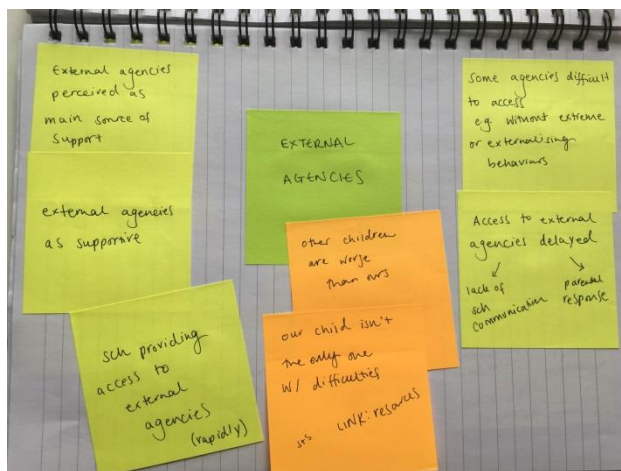 External agencies
perceived as
main source of
support
external agencies
as supportive
sch providing
access to
external
agencies
(rapidly)
EXTERNAL
AGENCIES
other children
are worse
than ours
our child isn't
the only one
w/ difficulties
LINK: resources
Some agencies difficult
to access
e.g. without extreme
or externalising
behaviours
Access to external
agencies delayed
lack of
sch
communication
parental
response